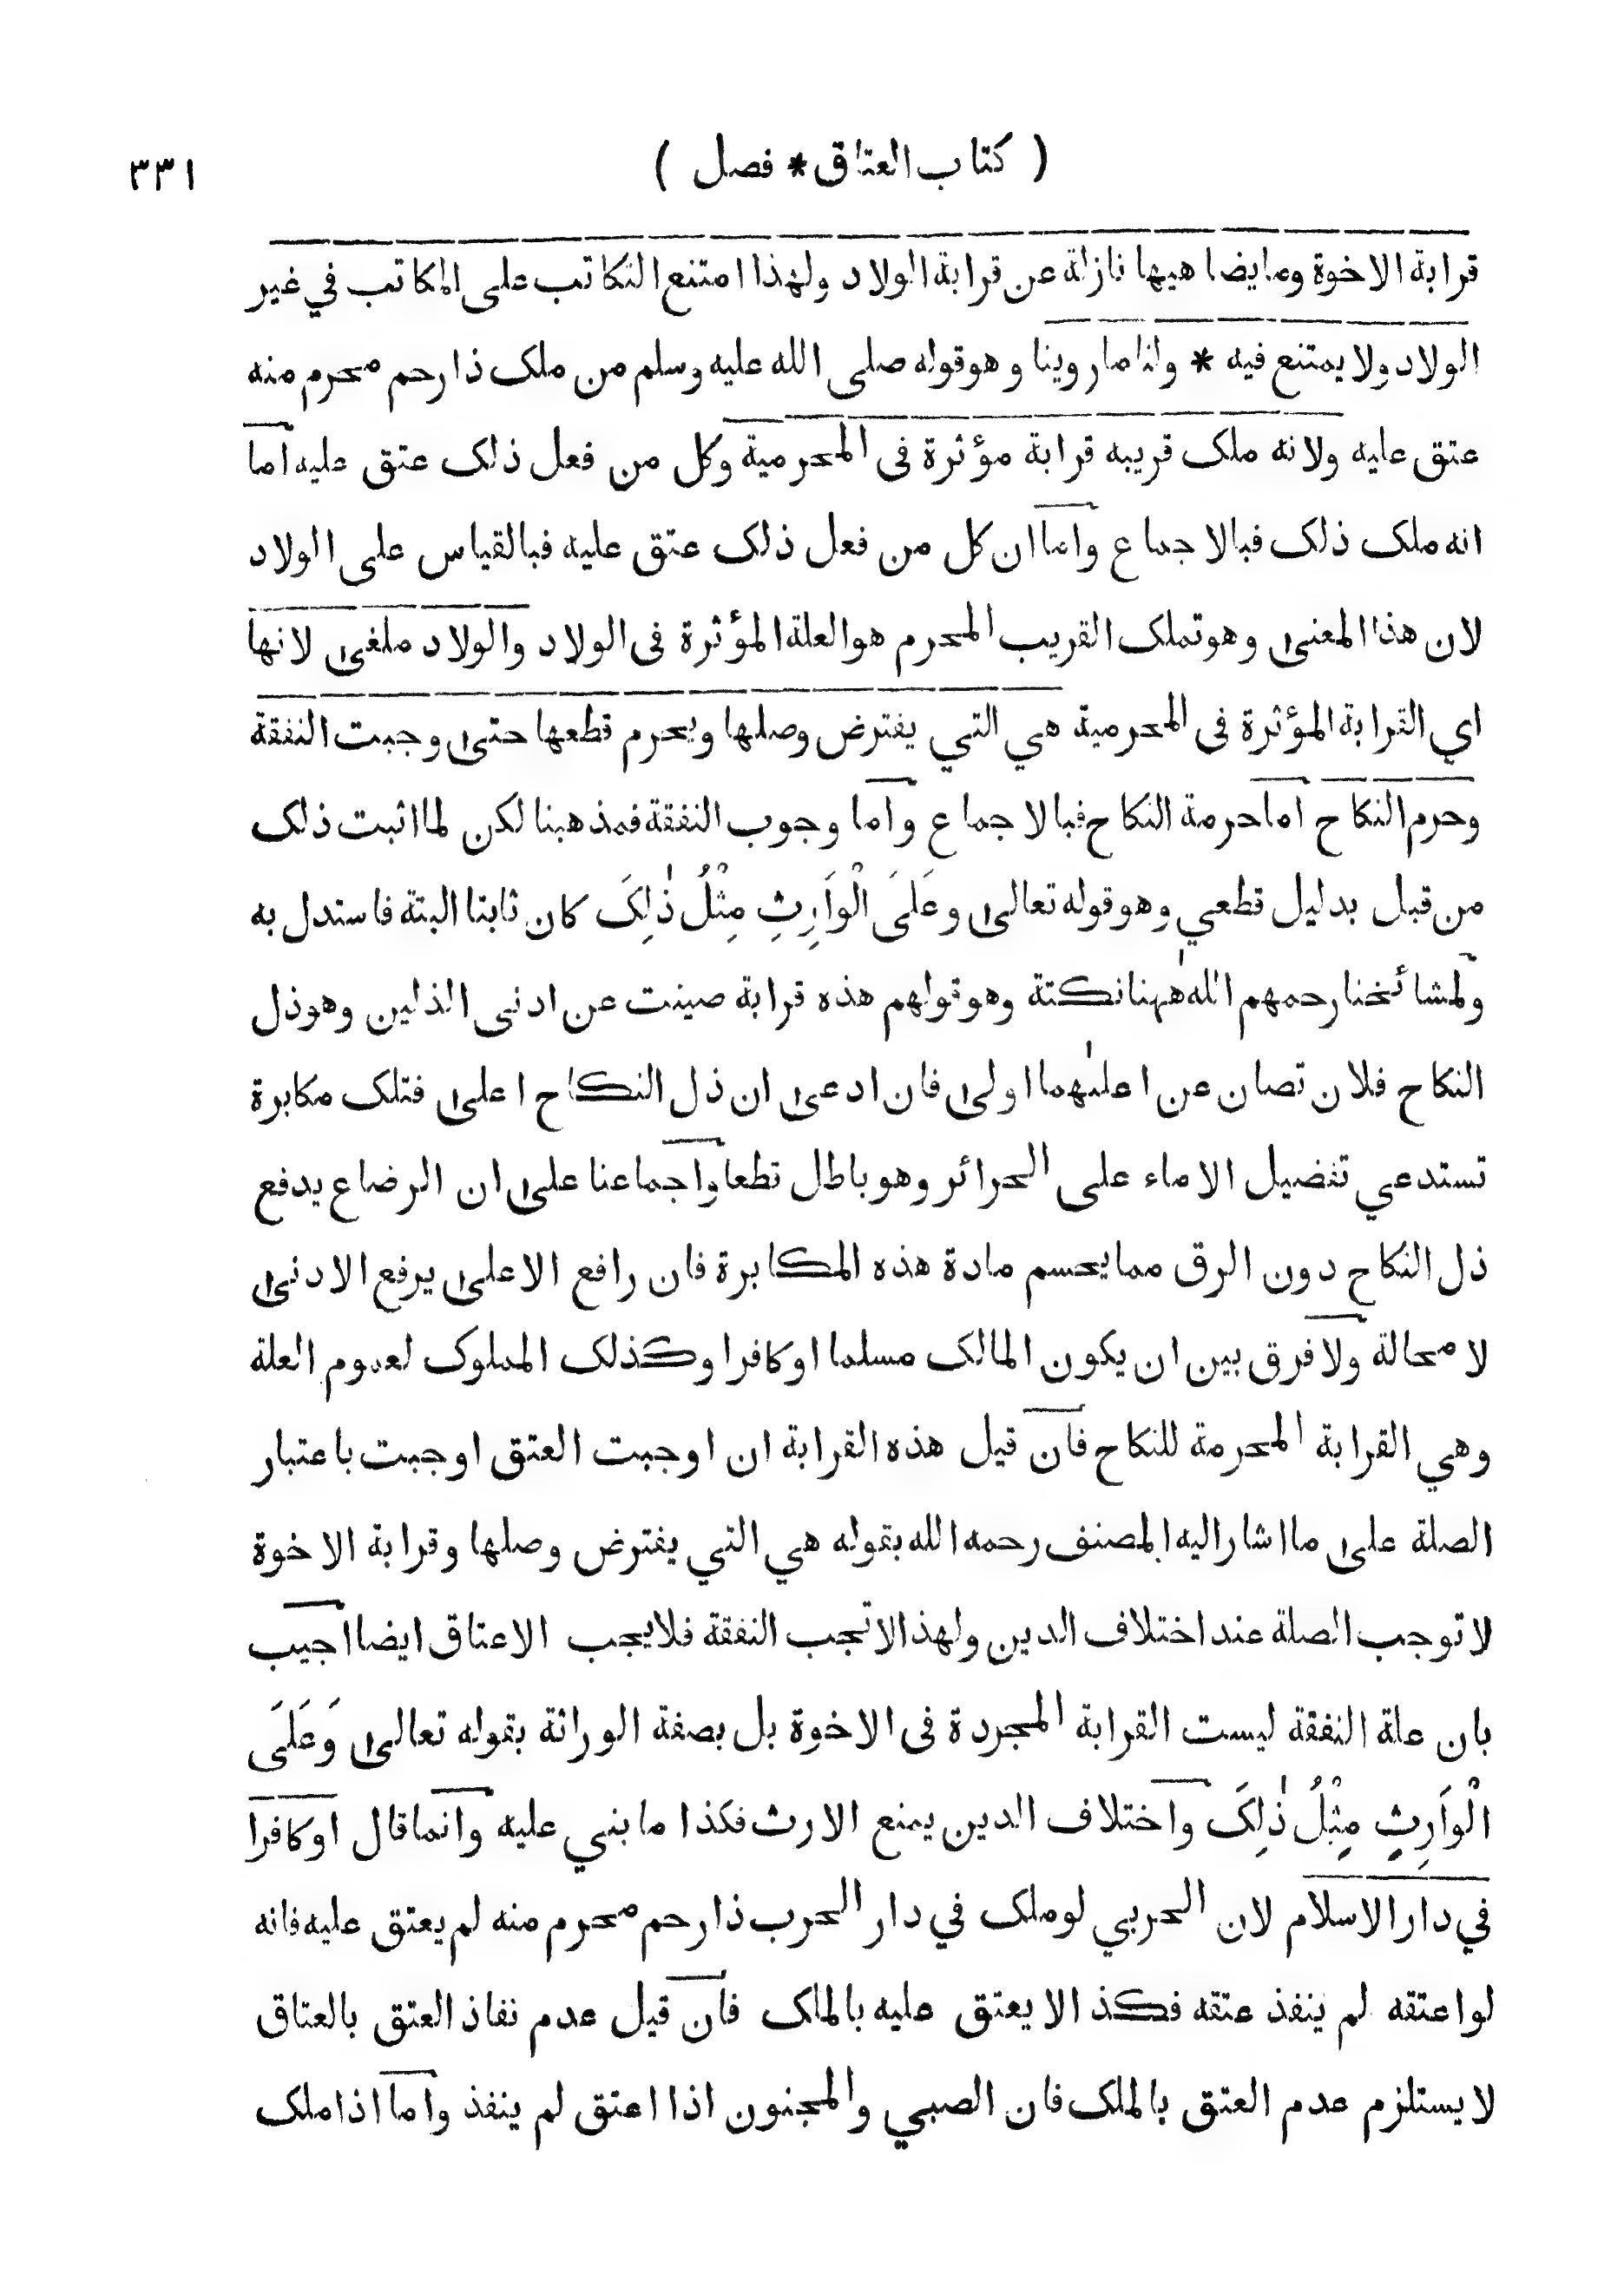 ( كتاب العتاق * فصل ) ٣٣١
قرابة الاخوة وما يضاهيها نازلة عن قرابة الولاد ولهذا امتنع التكاتب على المكاتب في غير
الولاد ولا يمتنع فيه * ولنا ما روينا وهو قوله صلى الله عليه وسلم من ملك ذا رحم محرم منه
عتق عليه ولانه ملك قريبه قرابة مؤثرة فى المحرمية وكل من فعل ذلك عتق عليه اما
انه ملك ذلك فبالاجماع واما ان كل من فعل ذلك عتق عليه فبالقياس على الولاد
لان هذا المعنى وهو تملك القريب المحرم هو العلة المؤثرة فى الولاد والولاد ملغى لانها
اي القرابة المؤثرة فى المحرمية هي التي يفترض وصلها ويحرم قطعها حتى وجبت النفقة
وحرم النكاح اما حرمة النكاح فبالاجماع واما وجوب النفقة فمذهبنا لكن لما اثبت ذلك
من قبل بدليل قطعي وهو قوله تعالى وعَلَى الْوَارِثِ مِثْلُ ذٰلِكَ كان ثابتا البتة فاستدل به
ولمشائخنا رحمهم الله ههنا نكتة وهو قولهم هذه قرابة صينت عن ادنى الذلين وهو ذل
النكاح فلان تصان عن اعلٰهما اولى فان ادعى ان ذل النكاح اعلى فتلك مكابرة
تستدعي تفضيل الاماء على الحرائر وهو باطل قطعا واجماعنا على ان الرضاع يدفع
ذل النكاح دون الرق مما يحسم مادة هذه المكابرة فان رافع الاعلى يرفع الادنى
لا محالة ولا فرق بين ان يكون المالك مسلما او كافرا وكذلك المملوك لعموم العلة
وهي القرابة المحرمة للنكاح فان قيل هذه القرابة ان اوجبت العتق اوجبت باعتبار
الصلة على ما اشار اليه المصنف رحمه الله بقوله هي التي يفترض وصلها وقرابة الاخوة
لا توجب الصلة عند اختلاف الدين ولهذا لا تجب النفقة فلا يجب الاعتاق ايضا اجيب
بان علة النفقة ليست القرابة المجردة فى الاخوة بل بصفة الوراثة بقوله تعالى وَعَلَى
الْوَارِثِ مِثْلُ ذٰلِكَ واختلاف الدين يمنع الارث فكذا ما بني عليه وانما قال او كافرا
في دار الاسلام لان الحربي لو ملك في دار الحرب ذا رحم محرم منه لم يعتق عليه فانه
لو اعتقه لم ينفذ عتقه فكذا لا يعتق عليه بالملك فان قيل عدم نفاذ العتق بالعتاق
لا يستلزم عدم العتق بالملك فان الصبي والمجنون اذا اعتق لم ينفذ واما اذا ملك